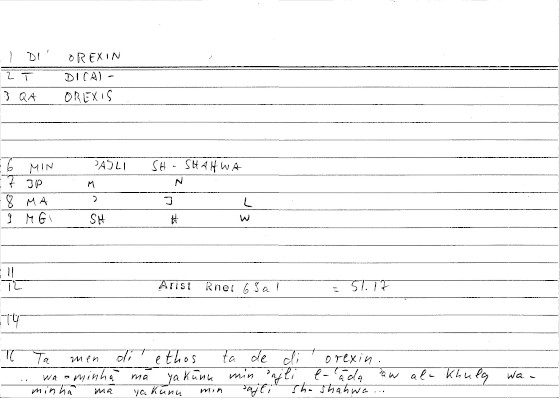 1 DI' OREXIN
2 T DI(A)-
3 QA OREXIS
6 MIN ʾAJLI SH-SHAHWA
7 JP M N
8 MA ʾ J L
9 MG SH H W
11
12 Arist Rhet 69a1 = 51.17
14
16 Ta men di' ethos ta de di' orexin.
.. wa-minhā mā yakūnu min ʾajli l-ʿāda ʾaw al-khulq wa-
minhā mā yakūnu min ʾajli sh-shahwa...